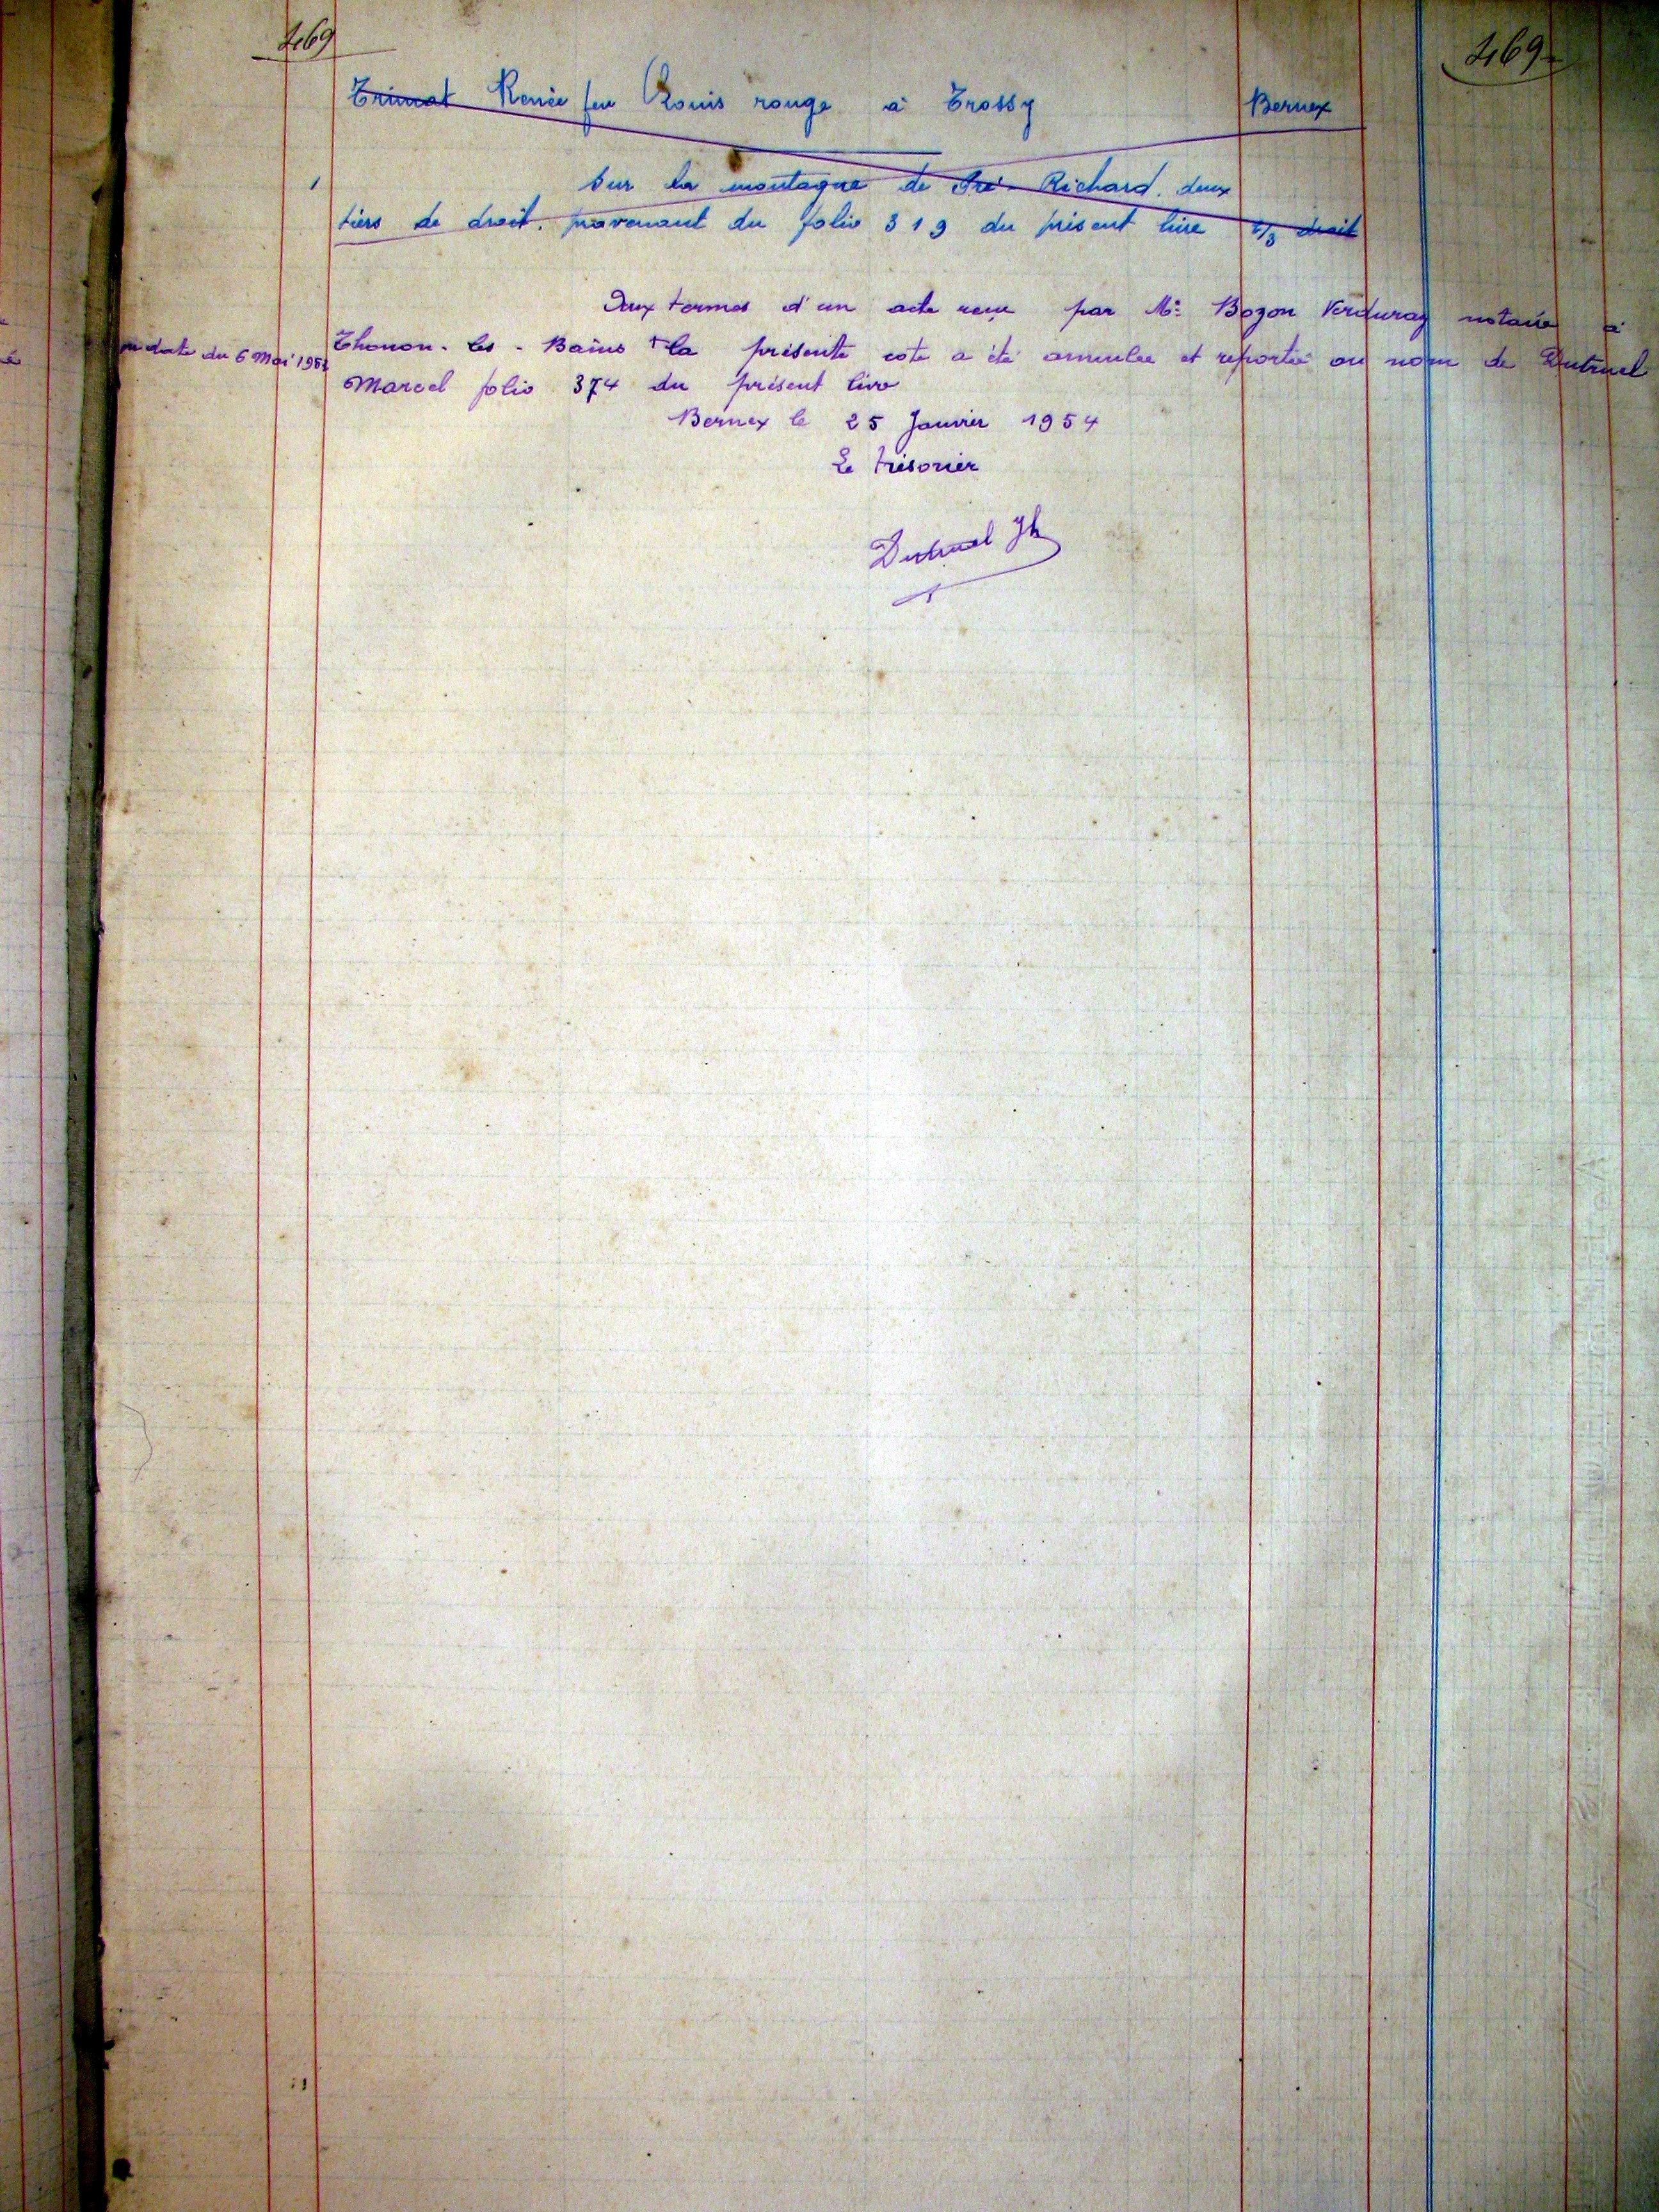 469
469
Trimat Renée feu Louis rouge à Trossy Bernex
1 Sur la montagne de Pré-Richard. deux
tiers de droit. provenant du folio 319 du présent livre 2/3 droit
Aux termes d'un acte reçu par Me Bozon Verduraz notaire à
en date du 6 Mai 195
Thonon-les-Bains + la présente cote a été annulée et reportée au nom de Dutruel
Marcel folio 374 du présent livre
Bernex le 25 Janvier 1954
Le trésorier
Dutruel Jh